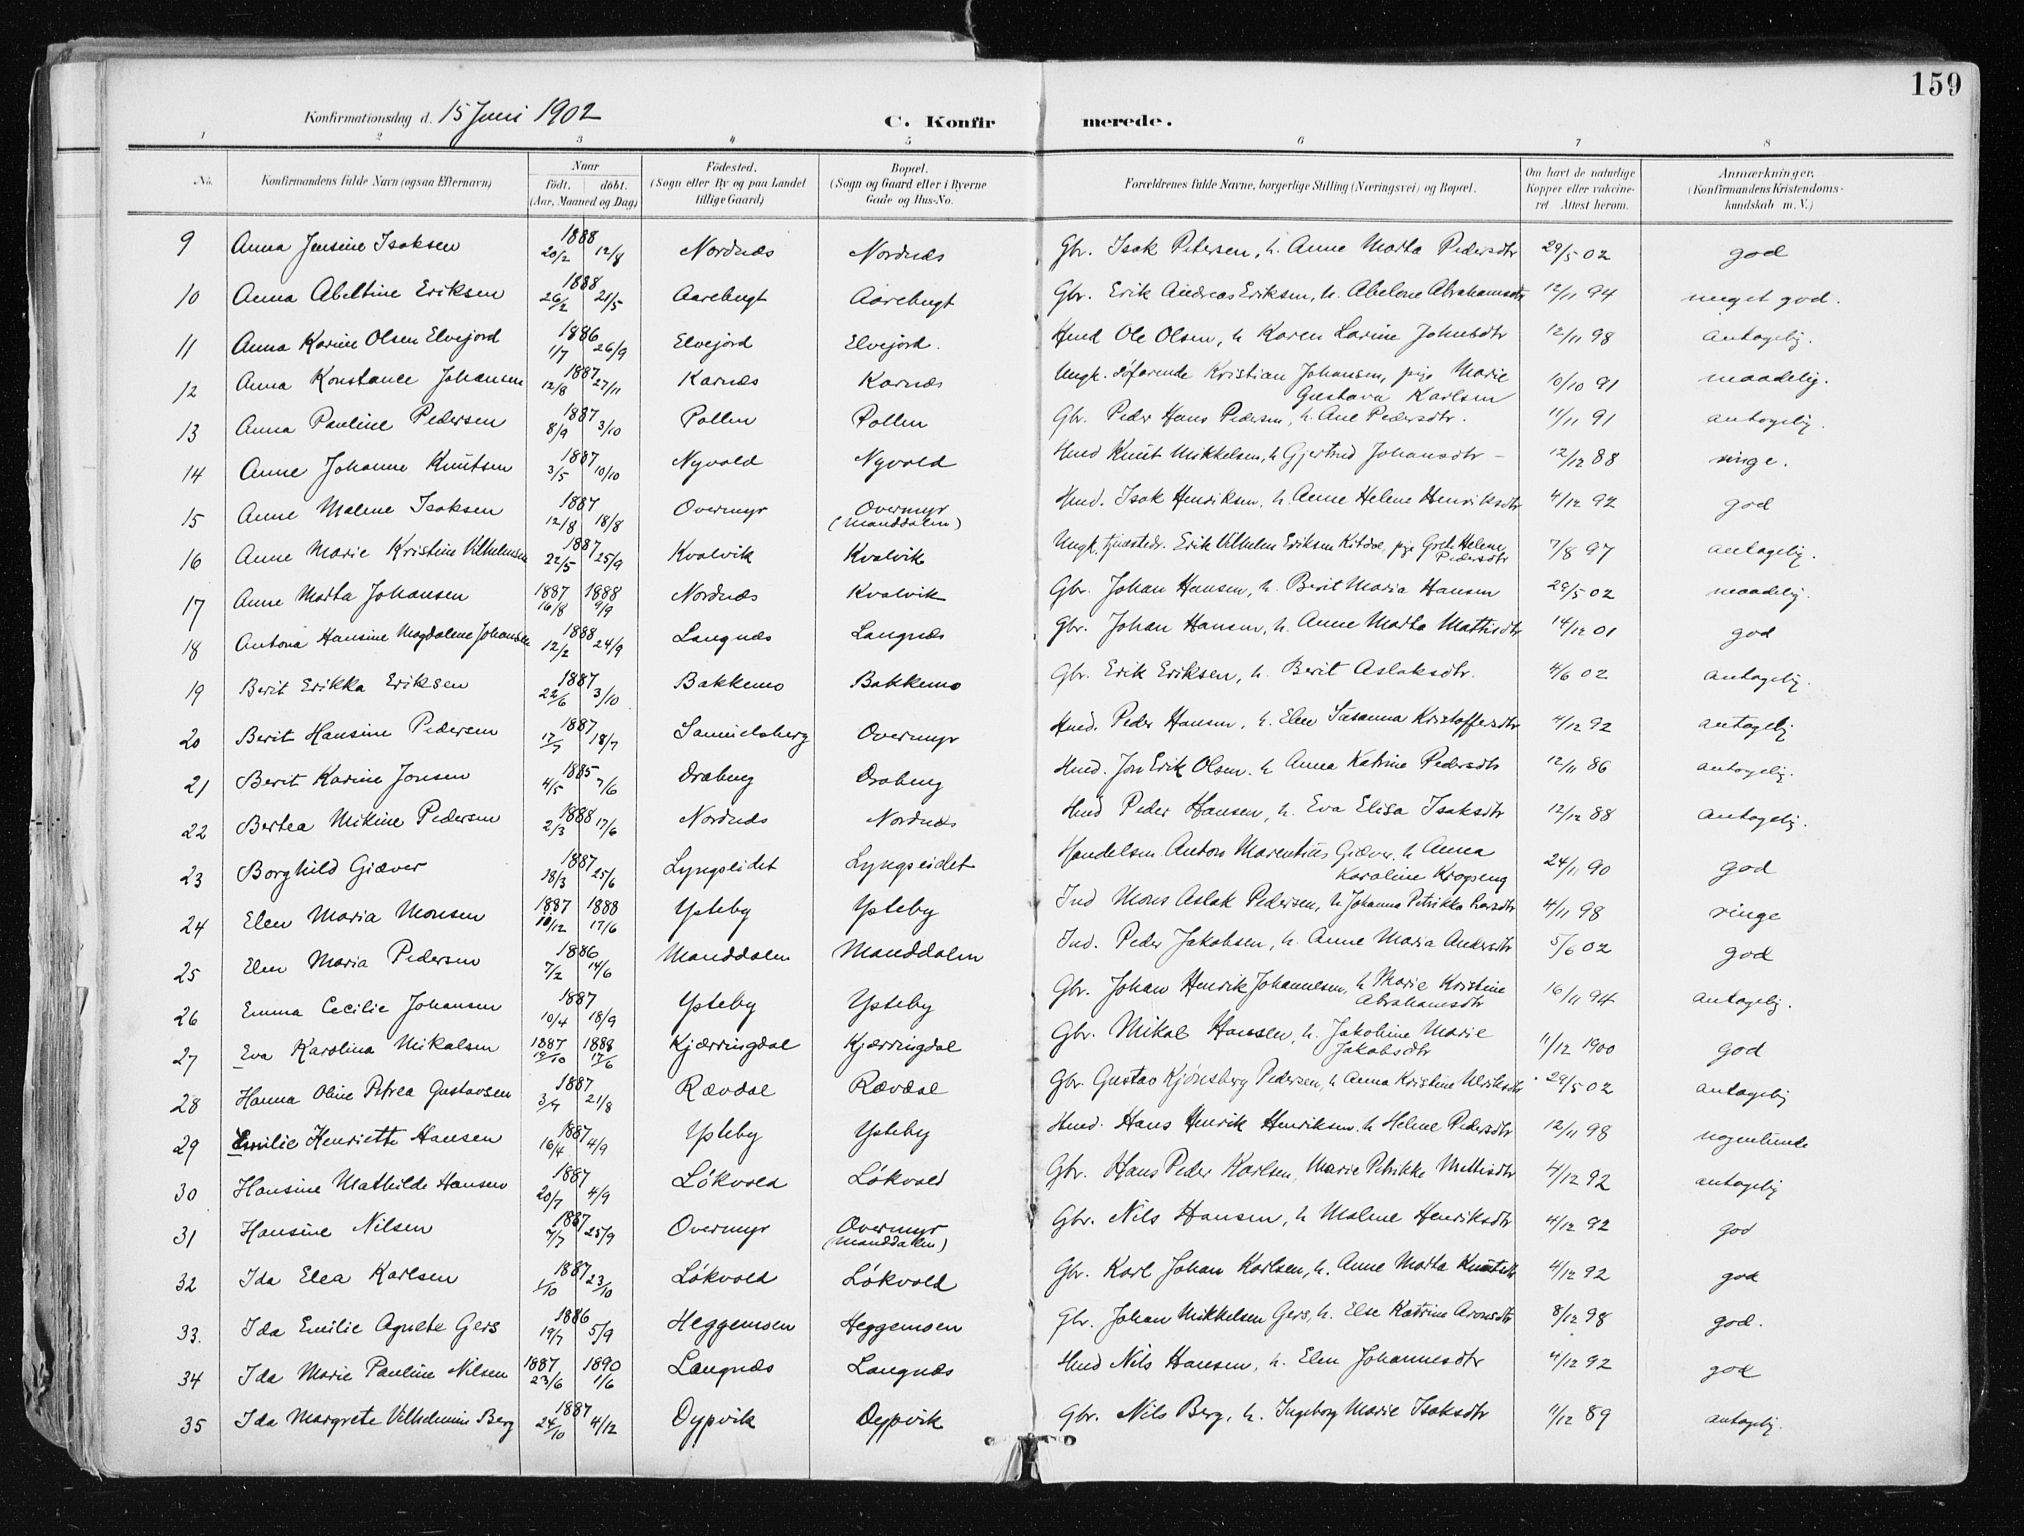 159
Konfirmationsdag d. 15 Juni 1902 C. Konfirmerede.
1 2 3 4 5 6 7 8
No. Konfirmandens fulde Navn (ogsaa Efternavn) Naar født. døbt. (Aar, Maaned og Dag) Fødested. (Sogn eller By og paa Landet tillige Gaard) Bopæl. (Sogn og Gaard eller i Byerne Gade og Hus-No. Forældrenes fulde Navne, borgerlige Stilling (Næringsvei) og Bopæl. Om havt de naturlige Kopper eller vakcineret Attest herom. Anmærkninger. (Konfirmandens Kristendomskundskab m. V.)
9 Anna Jensine Isaksen 1888 20/2 12/8 Nordnæs Nordnæs Gbr. Isak Petersen, h. Anne Marta Pedersdtr 29/5 02 god
10 Anna Abeltine Eriksen 1888 26/2 21/5 Aarebugt Aarebugt Gbr. Erik Andreas Eriksen, h. Abelone Abrahamsdtr 12/11 94 meget god.
11 Anna Karine Olsen Elvejord 1886 1/7 26/9 Elvejord Elvejord. Hmd Ole Olsen, h Karen Larine Johnsdtr 12/11 98 antagelig.
12 Anna Konstance Johansen 1887 12/8 27/11 Karnæs Karnæs Ungk. søfarende Kristian Johansen, pige Marie Gustava Karlsen 10/10 91 maadelig.
13 Anna Pauline Pedersen 1887 8/9 3/10 Pollen Pollen Gbr. Peder Hans Pedersen, h. Ane Pedersdtr. 11/11 91 antagelig.
14 Anne Johanne Knutsen 1887 3/5 10/10 Nyvold Nyvold Hmd Knut Mikkelsen, h Gjertrud Johansdtr – 12/12 88 ringe.
15 Anne Malene Isaksen 1887 12/8 18/8 Overmyr Overmyr (Manddalen) Hmd. Isak Henriksen, h. Anne Helene Henriksdtr 4/12 92 god
16 Anne Marie Kristine Vilhelmsen 1887 22/5 25/9 Kvalvik Kvalvik Ungk, tjenestedr. Erik Vilhelm Eriksen Kitdal, pige Grete Helene Pedersdtr 7/8 97 antagelig.
17 Anne Marta Johansen 1887 16/8 1888 9/9 Nordnæs Kvalvik Gbr. Johan Hansen, h. Berit Maria Hansen 29/5 02 maadelig.
18 Antona Hansine Magdalene Johansen 1888 12/2 24/9 Langnæs Langnæs Gbr. Johan Hansen, h. Anne Marta Mathisdtr 14/12 01 god
19 Berit Erikka Eriksen 1887 22/6 3/10 Bakkemo Bakkemo Gbr. Erik Eriksen, h. Berit Aslaksdtr. 4/6 02 antagelig.
20 Berit Hansine Pedersen 1887 17/7 18/7 Samuelsberg Overmyr Hmd. Peder Hansen, h. Elen Susanna Kristoffersdtr 4/12 92 antagelig
21 Berit Karine Jonsen 1885 4/5 7/6 Draberg Draberg Hmd. Jon Erik Olsen. h Anna Katrine Pedersdtr 12/11 86 antagelig.
22 Bertea Mikine Pedersen 1888 2/3 17/6 Nordnæs Nordnæs Hmd Peder Hansen, h. Eva Elisa Isaksdtr 12/12 88 antagelig.
23 Borghild Giæver 1887 18/3 25/6 Lyngseidet Lyngseidet Handelsm Anton Marentius Giæver. h Anna Karoline Kropseng 24/11 90 god
24 Elen Maria Monsen 1887 10/12 1888 17/6 Ysteby Ysteby Ind Mons Aslak Pedersen, h Johanna Petrikka Larsdtr 4/11 98 ringe
25 Elen Maria Pedersen 1886 7/2 14/6 Manddalen Manddalen Ind. Peder Jakobsen, h. Anne Maria Andersdtr 5/6 02 god
26 Emma Cecilie Johansen 1887 10/4 18/9 Ysteby Ysteby Gbr. Johan Henrik Johannesen, h Marie Kristine Abrahamsdtr 16/11 94 antagelig.
27 Eva Karolina Mikalsen 1887 19/10 1888 17/6 Kjærringdal Kjærringdal Gbr. Mikal Hansen, h. Jakobine Marie Jakobsdtr 11/12 1900 god
28 Hanna Oline Petrea Gustavsen 1887 3/7 21/8 Rævdal Rævdal Gbr. Gustav Kjønsberg Pedersen, h Anna Kristine Ulriksdtr 29/5 02 antagelig
29 Emilie Henriette Hansen 1887 16/4 4/9 Ysteby Ysteby Hmd. Hans Henrik Henriksen. h Helene Pedersdtr 12/11 98 nogenlunde
30 Hansine Mathilde Hansen 1887 20/7 4/9 Løkvold Løkvold Gbr. Hans Peder Karlsen, Marie Petrikke Mathisdtr 4/12 92 antagelig
31 Hansine Nilsen 1887 7/7 25/9 Overmyr Overmyr (Manddalen) Gbr. Nils Hansen, h Malene Henriksdtr 4/12 92 god
32 Ida Elea Karlsen 1887 1/10 23/10 Løkvold Løkvold Gbr. Karl Johan Karlsen, h. Anne Marta Knutsdtr 4/12 92 god
33. Ida Emilie Agnete Gers 1886 19/7 5/9 Heggemoen Heggemoen Gbr. Johan Mikkelsen Gers, h. Else Katrine Aronsdtr 8/12 98 god.
34 Ida Marie Pauline Nilsen 1887 23/6 1890 1/6 Langnæs Langnæs Hmd Nils Hansen, h. Elen Johannesdtr 4/12 92 god
35 Ida Margrete Vilhelmine Berg 1887 24/10 4/12 Dypvik Dypvik Gbr. Nils Berg, h. Ingeborg Marie Isaksdtr 11/12 89 antagelig.